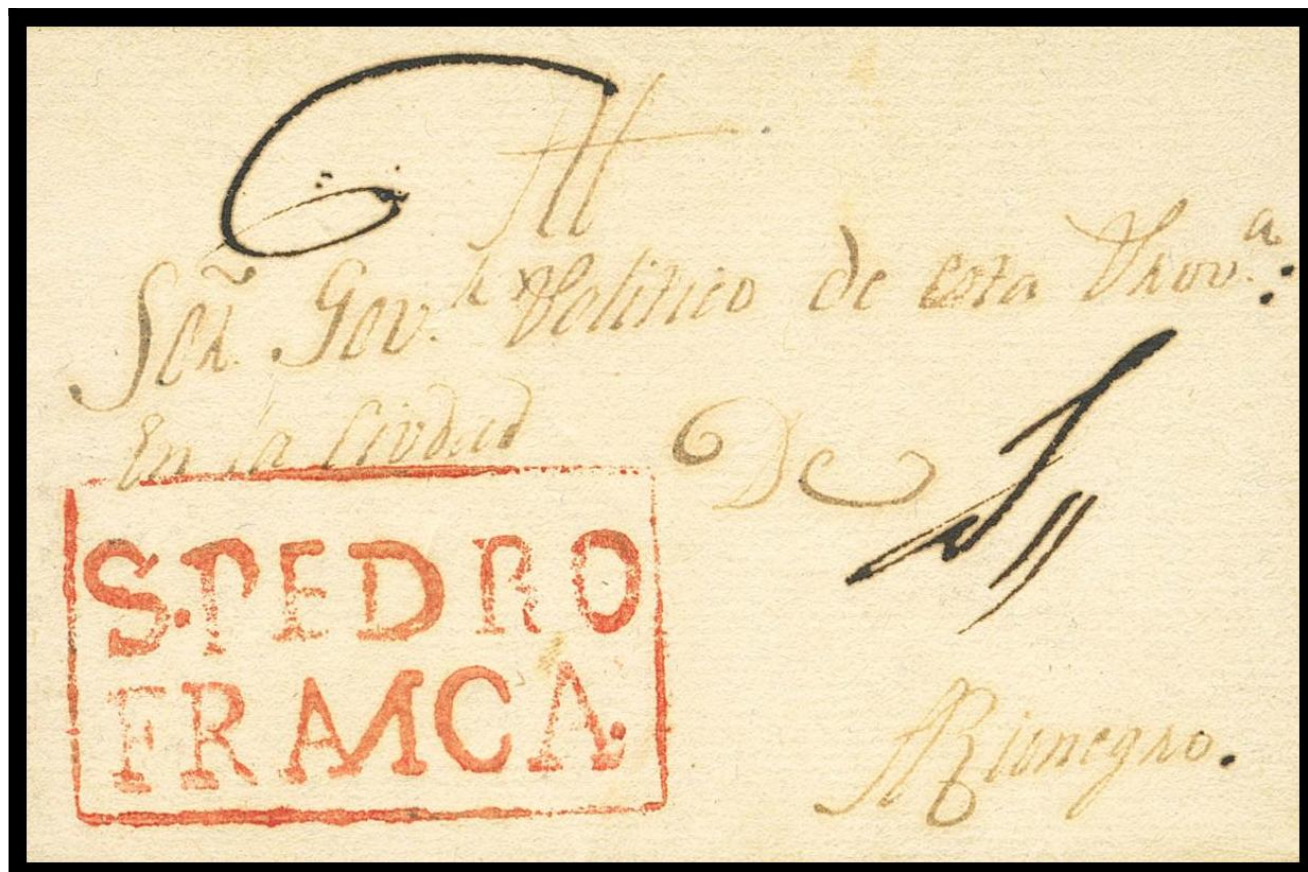 Al
Señ.r Gov.r Politico de esta Prov.a
En la Ciudad De
S. PEDRO
FRANCA.
Rionegro.